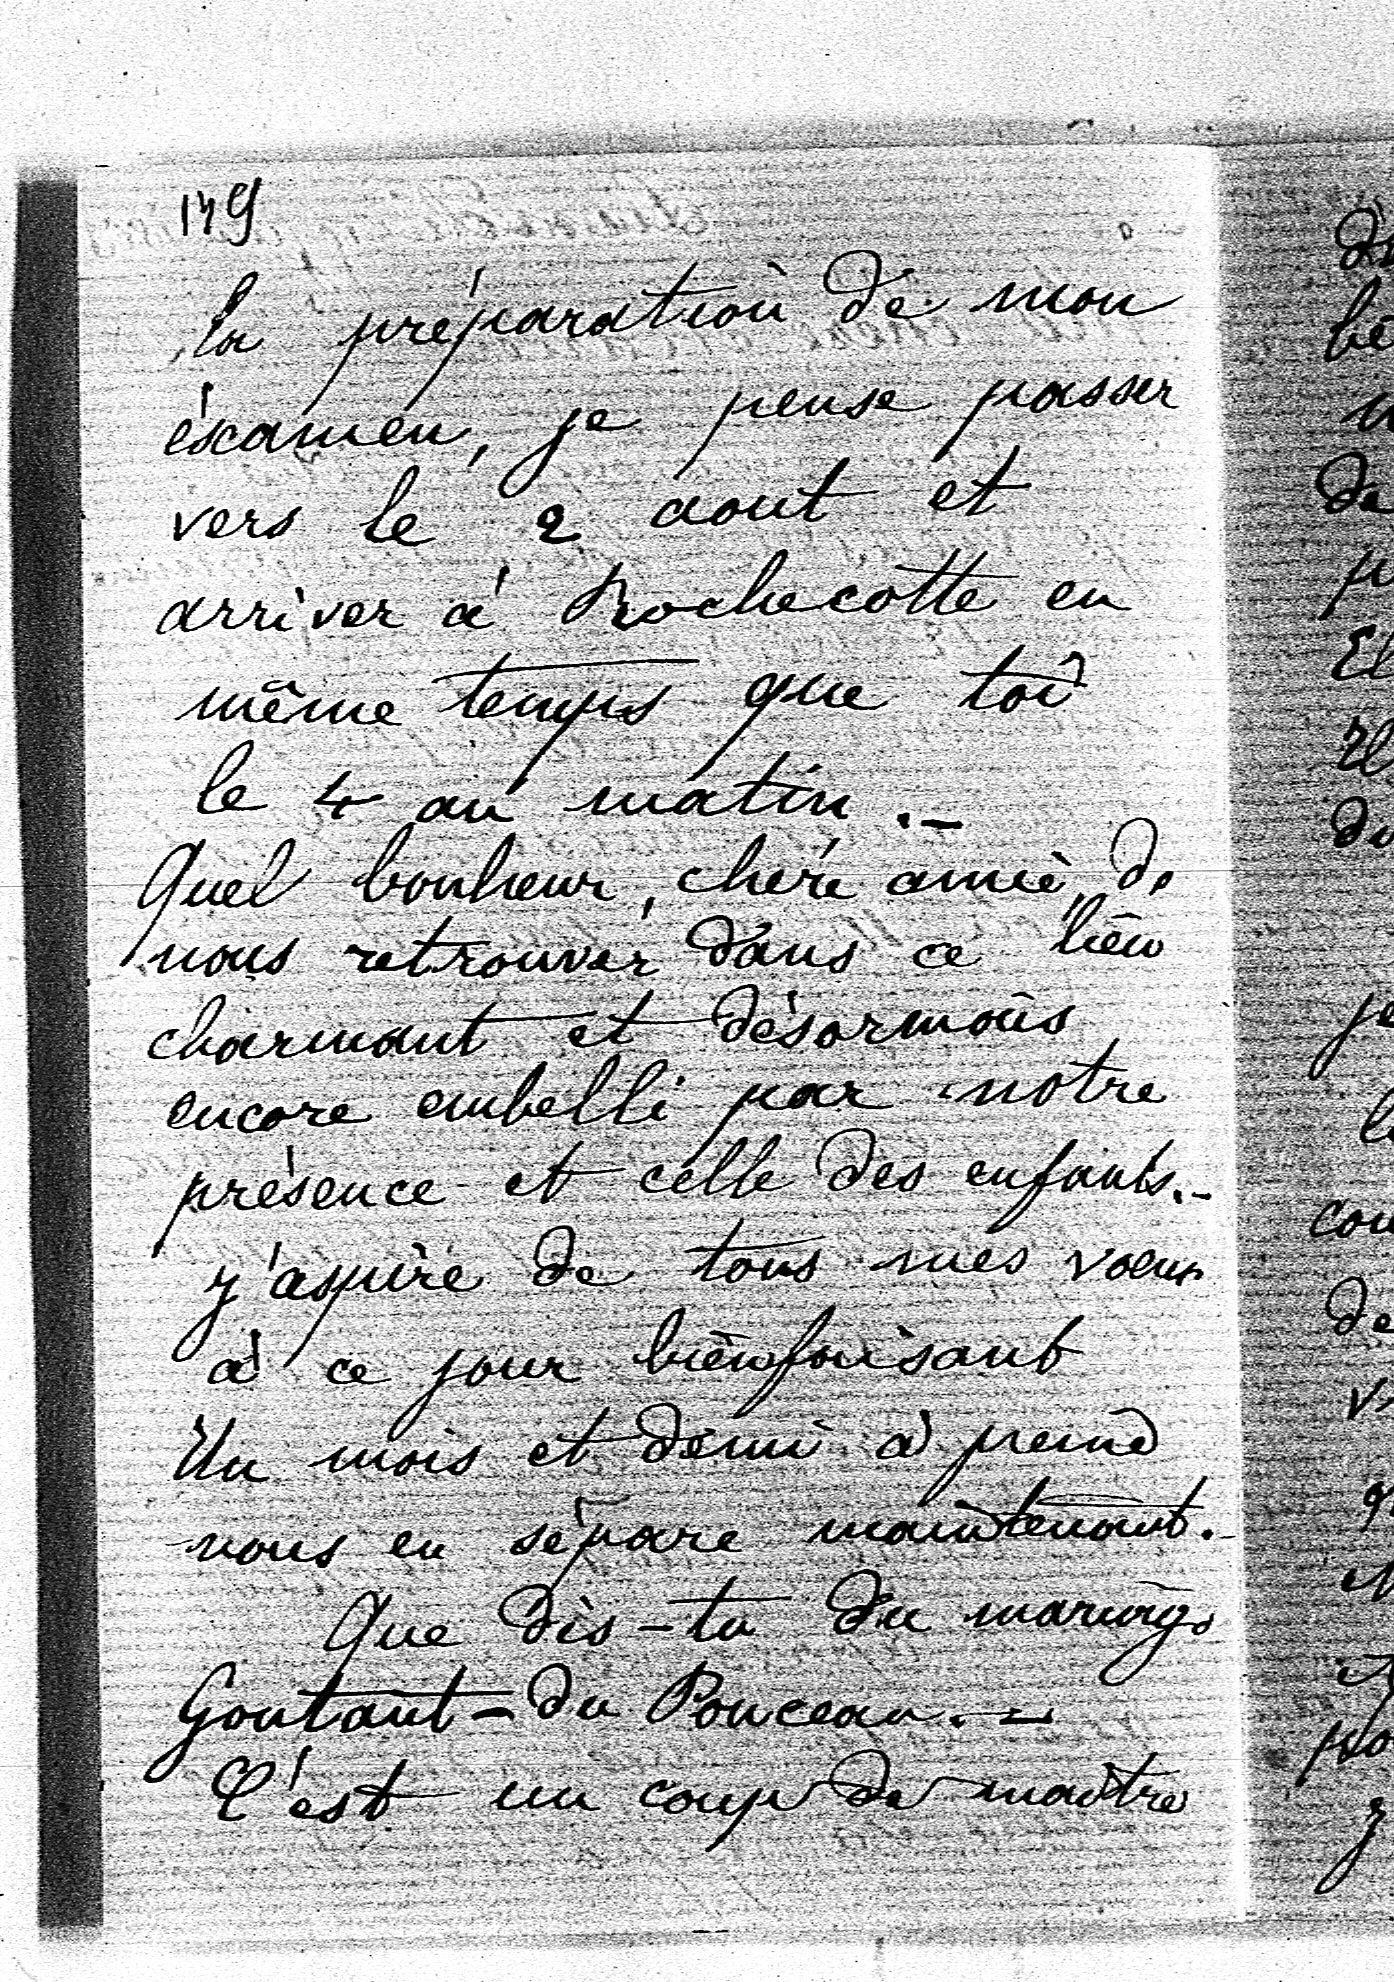 149
la préparation de mon
éxamen, je pense passer
vers le 2 aout et
arriver à Rochecotte en
même temps que toi
le 4 au matin.-
Quel bonheur, chère amie, de
nous retrouver dans ce lieu
charmant et désormais
encore embelli par notre
présence et celle des enfants.-
J'aspire de tous mes voeux
à ce jour bienfaisant
Un mois et demi à peine
nous en sépare maintenant.
Que dis-tu du mariage
Goutant-du Ponceau.-
C'est un coup de maître